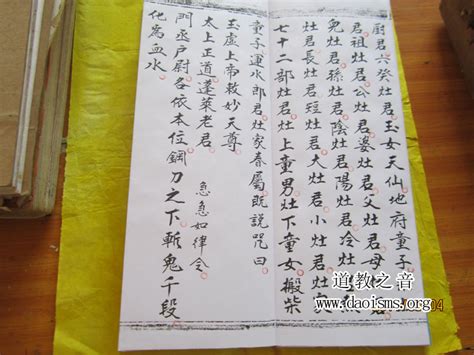 廚君六癸灶君玉女天仙地府童子
君祖灶君公灶君婆灶君父灶君母灶君
兒灶君孫灶君陰灶君陽灶君冷灶君熱
灶君長灶君短灶君大灶君小灶君
七十二部灶君灶上童男灶下童女搬柴
童子運水郎君灶家眷屬既說咒曰
玉虛上帝敕妙天尊
太上正道蓬萊老君
急急如律令
門丞戶尉各依本位鋼刀之下斬鬼千段
化為血水
道教之音
www.daoisms.org
04